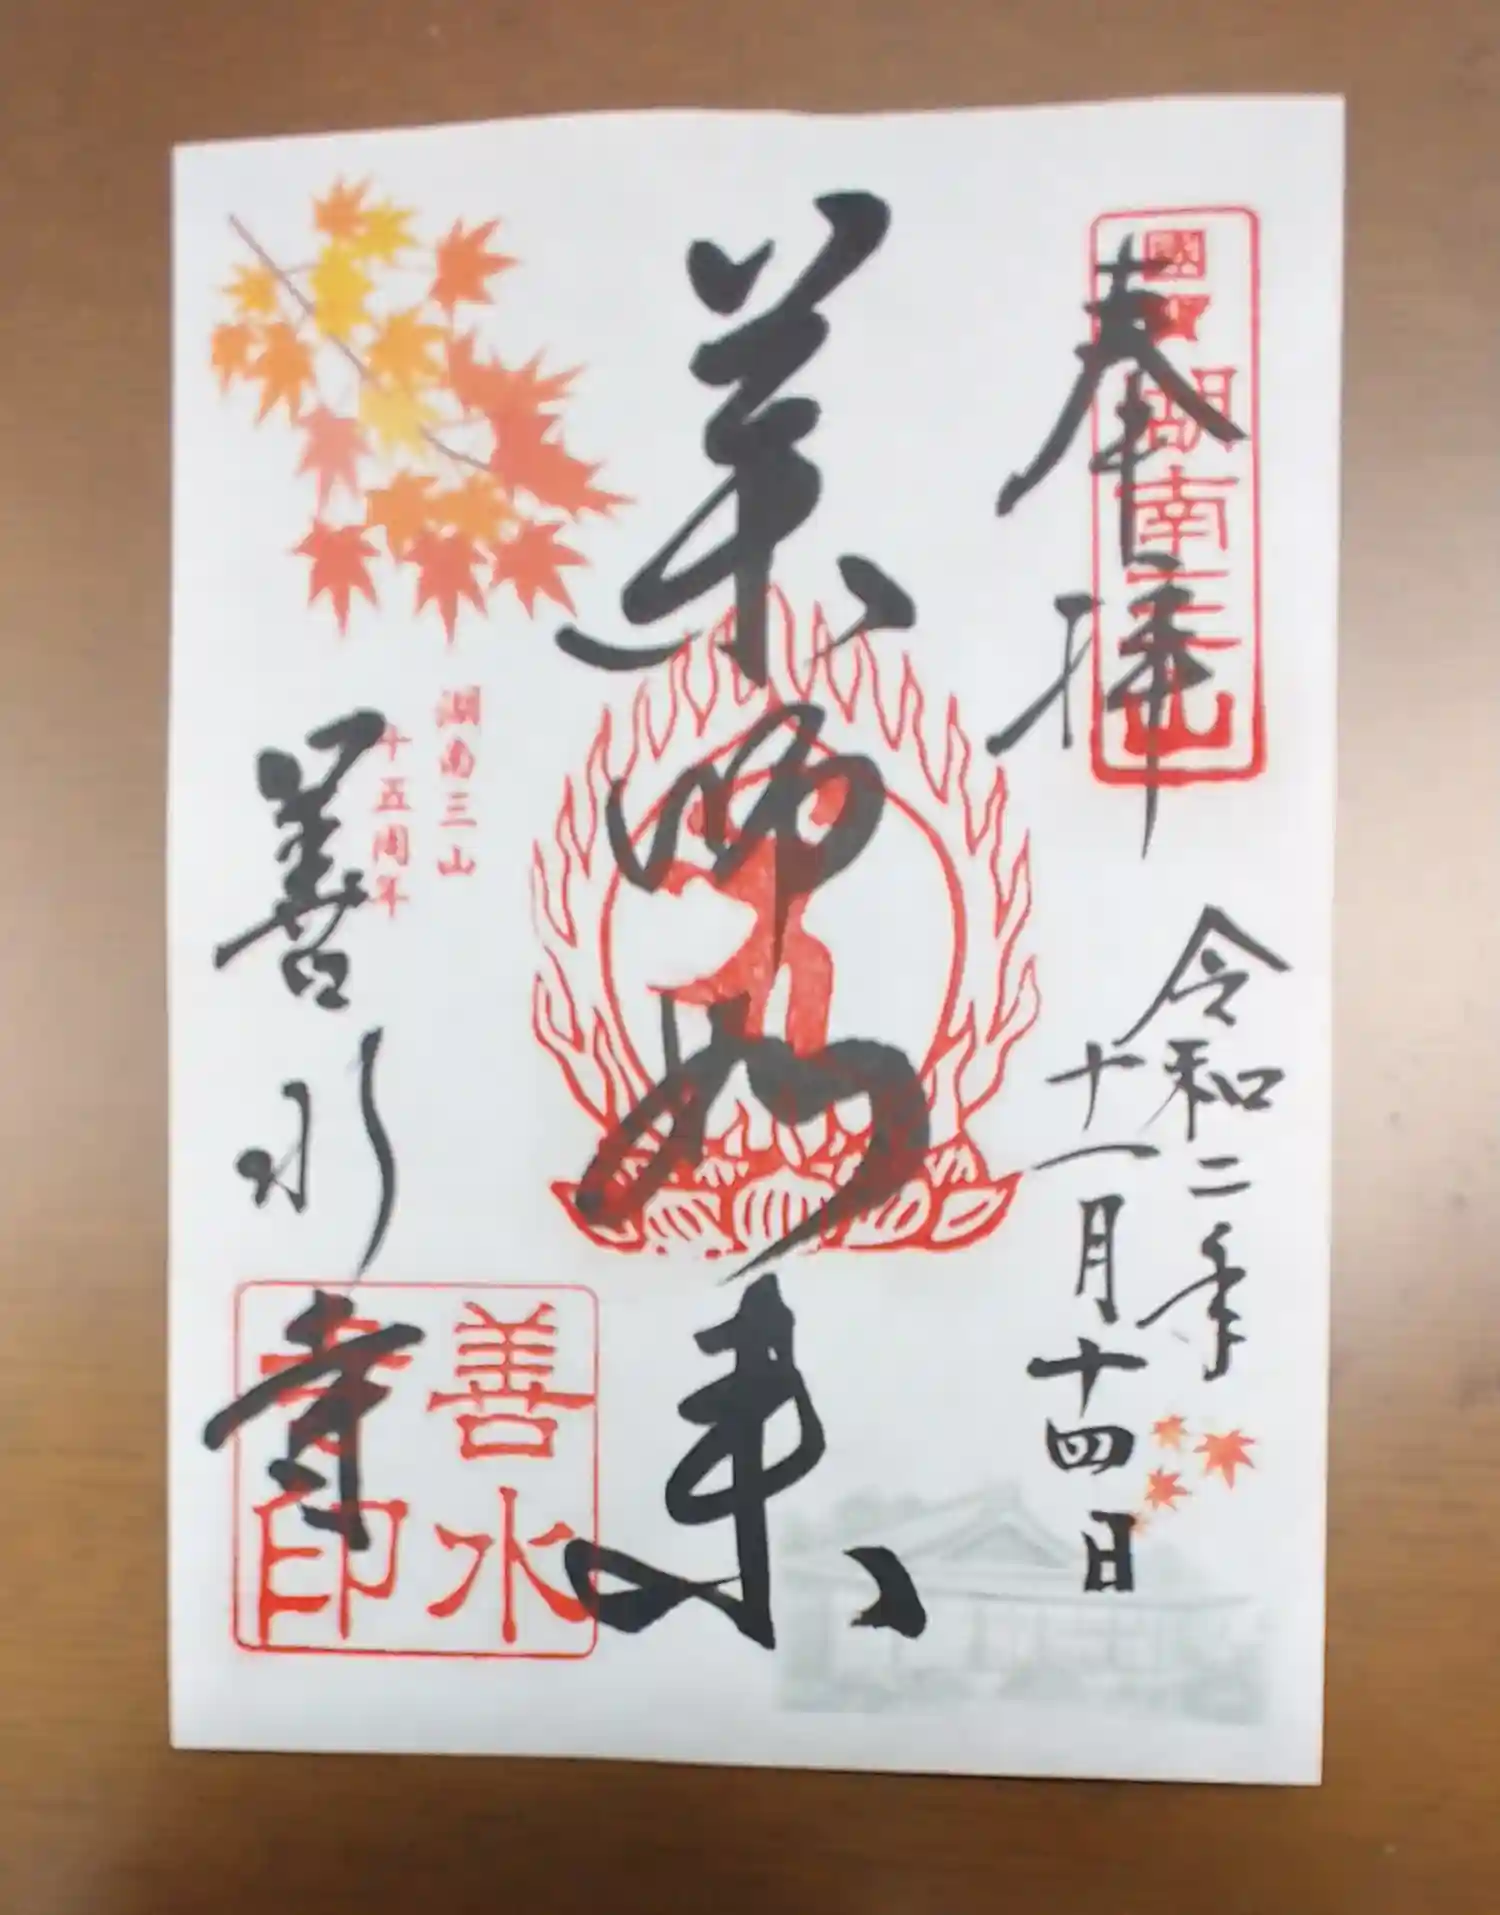 奉拝
湖南三山
令和二年
十一月十四日
薬師如来
湖南三山
十五周年
善水寺
善水
寺印